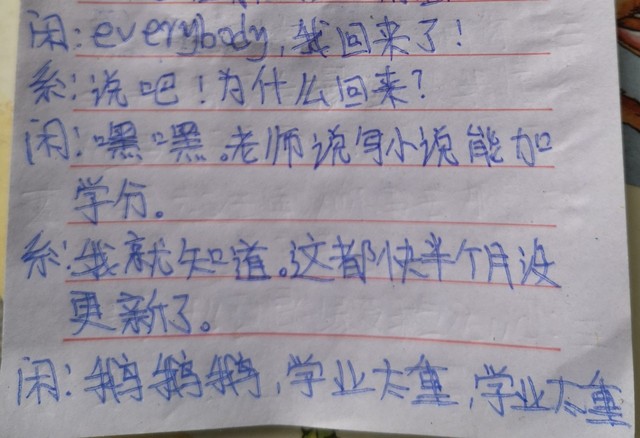 闲:everybody,我回来了!
系:说吧!为什么回来?
闲:嘿嘿。老师说写小说能加
学分。
系:我就知道。这都快半个月没
更新了。
闲:鹅鹅鹅,学业太重,学业太重